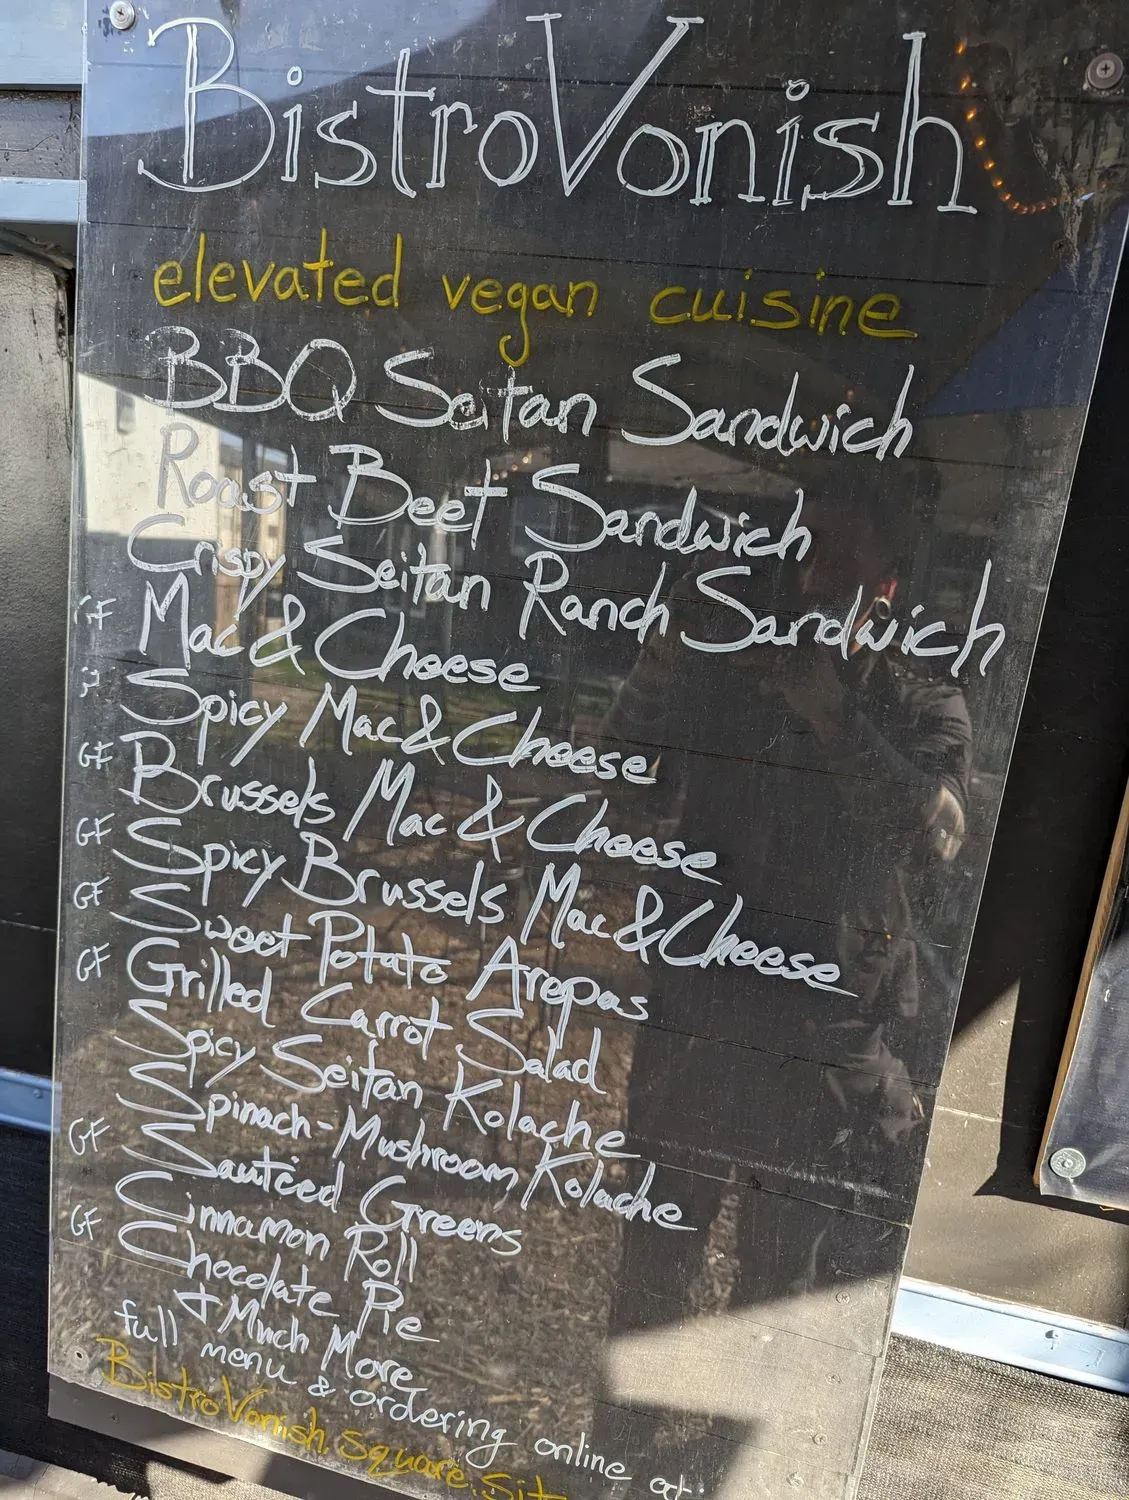 BistroVonish
elevated vegan cuisine
BBQ Seitan Sandwich
Roast Beet Sandwich
Crispy Seitan Ranch Sandwich
GF Mac & Cheese
Spicy Mac & Cheese
GF Brussels Mac & Cheese
GF Spicy Brussels Mac & Cheese
GF Sweet Potato Arepas
GF Grilled Carrot Salad
Spicy Seitan Kolache
Spinach-Mushroom Kolache
GF Sautéed Greens
Cinnamon Roll
GF Chocolate Pie
+ Much More
full menu & ordering online at:
BistroVonish.square.sit